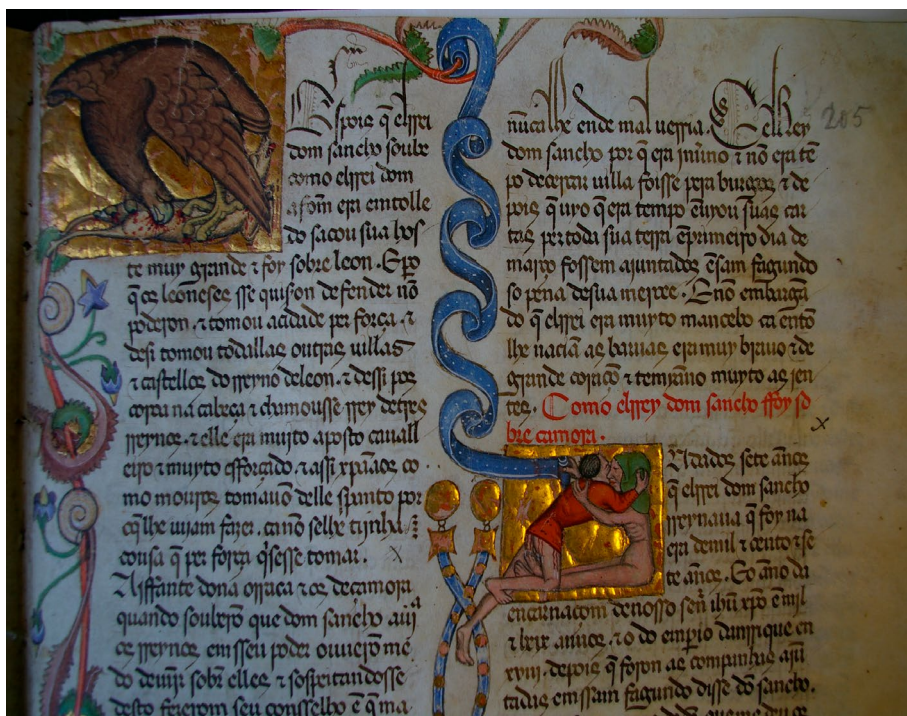 Espois q̃ elrrei
dom sancho soube
como elrrei dom
afom̃ era em tolle
do sacou sua hos
te muy grande ⁊ foy sobre leon. E po
q̃ os leoneses sse quison defender nõ
poderon. ⁊ tomou acidade per força. ⁊
desi tomou todallas outras villas
⁊ castellos do rreyno de leon. ⁊ dessi pos
coroa na cabeça ⁊ chamousse rrey de tres
rreynos. ⁊ elle era muito aposto cauall
eiro ⁊ muyto efforçado. ⁊ assi xp̃aãos co
mo mouros tomauõ delle spanto por
q̃ lhe uijam fazer. ca nõ selhe tijnha
cousa q̃ per força q̃sesse tomar.
A iffante dona orraca ⁊ os de çamora
quando souberõ que dom sancho auia
os rreynos em sseu poder ouuerõ me
do de uijr sobre elles. ⁊ sospeitandosse
desto fezerom seu consselho ẽ q̃ ma
nũca lhe ende mal uerria. Elrrey
205
dom sancho por q̃ era jnũno ⁊ nõ era tẽ
po de cercar uilla foisse pera burgos. ⁊ de
pois q̃ uyo q̃ era tempo ẽuyou suas car
tas per toda sua terra ẽ primeiro dia de
março fossem ajuntados ẽ sam fagundo
so pena de sua merçee. E nõ embargã
do q̃ elrrei era muyto mancebo ca entõ
lhe naciã as baruas era muy brauo ⁊ de
grande coraçõ ⁊ temiãno muyto as jen
tes. Como elrrey dom sancho ffoy so
bre çamora.
Andados sete ãnos
q̃ elrrei dom sancho
rreynaua q̃ foy na
era de mil ⁊ cento ⁊ se
te ãnos. Eo ãno da
encarnaçom de nosso señ ihũ xpõ ẽ mil
⁊ lxix ãnos. ⁊ o do emperio danrrique en
xviij. depois q̃ foron as companhas aju
tadas em ssam fagundo disse dõ sancho.